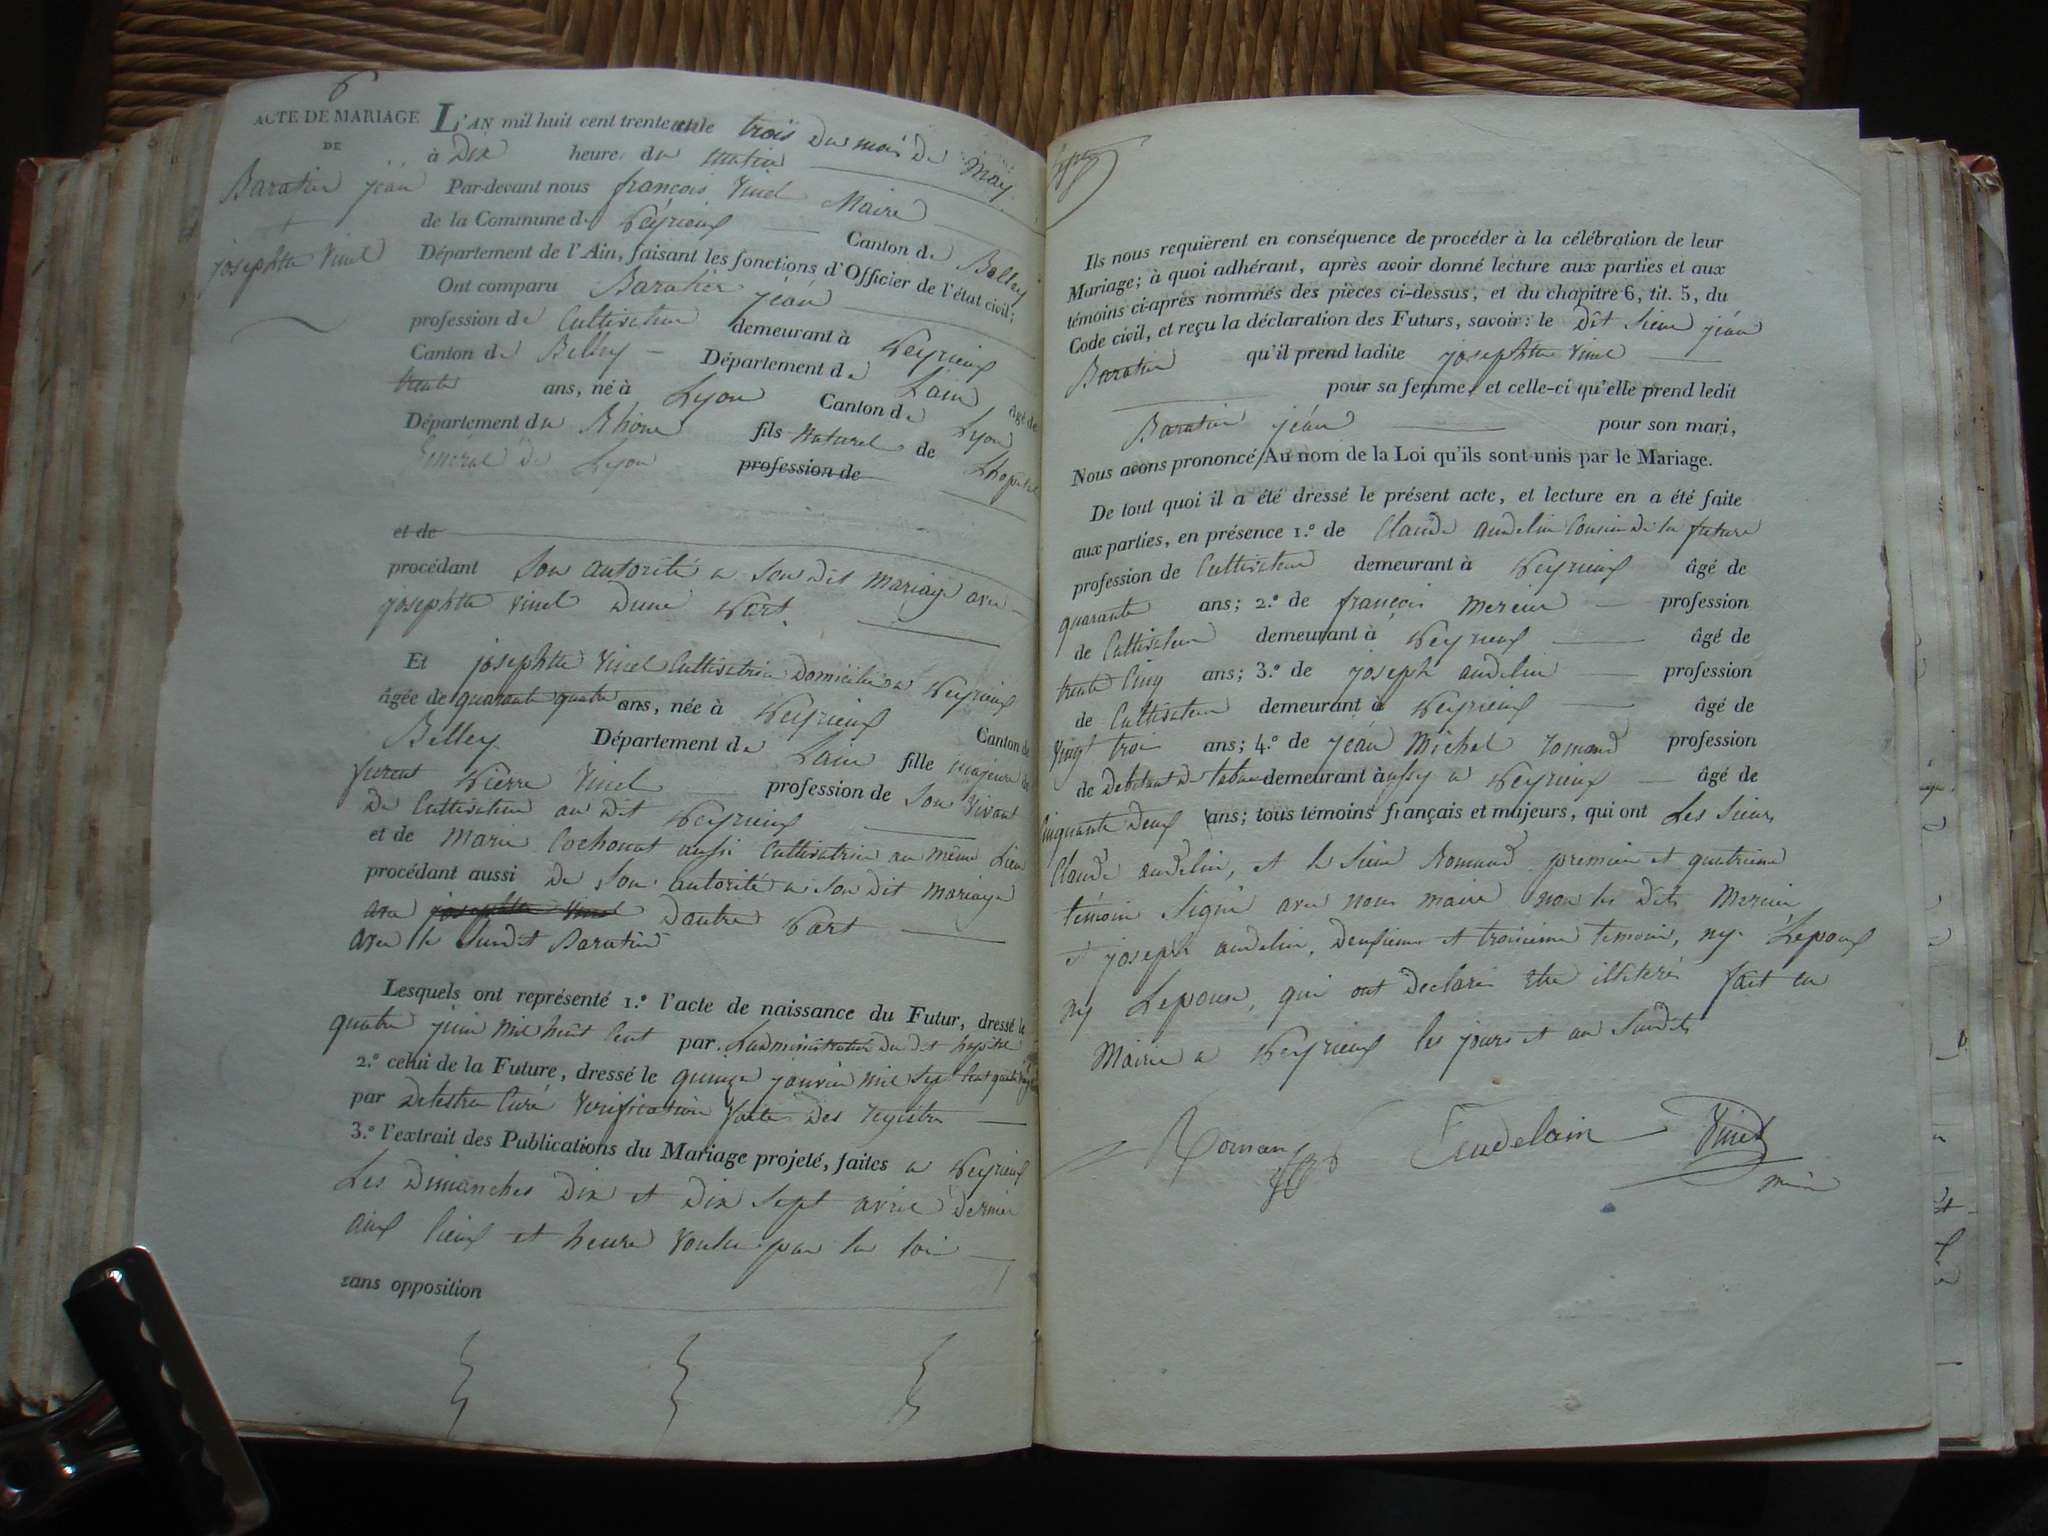 6
ACTE DE MARIAGE
DE
Baratier jéan
+
josephtte Vinel
L'AN mil huit cent trente et le trois du mois de May
à Dix heure du matin
Par-devant nous françois Vinel Maire
de la Commune de Peÿrieux Canton de Belley
Département de l'Ain, faisant les fonctions d'Officier de l'état civil;
Ont comparu Baratier jéan
profession de Cultivateur demeurant à Peyrieux
Canton de Belley Département de Lain âgé de
trente ans, né à Lyon Canton de Lyon
Département du Rhône fils Naturel de Lhopital
General de Lyon profession de
et de
procédant Son autorité a Son dit mariage avec
josephtte Vinel Dune Part
Et josephtte Vinel Cultivatrice Domiciliée a Peyrieux
âgée de quarante quatre ans, née à Peyrieux Canton de
Belley Département de Lain fille majeure de
furent Pierre Vinel profession de Son Vivant
de Cultivateur au dit Peyrieux
et de Marie Cochonat aussi Cultivatrice au même Lieu
procédant aussi de Son autorité a Son dit Mariage
avec josephtte Vinel Dautre Part
avec le Susdit Baratier
Lesquels ont représenté 1.º l'acte de naissance du Futur, dressé le
quatre juin mil huit Cent par Ladministration du dit hopital
2.º celui de la Future, dressé le quinze janvier mil Sept Cent quatre vingt
par Curé Verification faite Des registre
3.º l'extrait des Publications du Mariage projeté, faites a Peyrieux
Les Dimanches Dix et Dix Sept avril dernier
aux lieux et heure Voulu par la loi
sans opposition
Ils nous requièrent en conséquence de procéder à la célébration de leur
Mariage; à quoi adhérant, après avoir donné lecture aux parties et aux
témoins ci-après nommés des pièces ci-dessus, et du chapitre 6, tit. 5, du
Code civil, et reçu la déclaration des Futurs, savoir: le dit Sieur jéan
Baratier qu'il prend ladite josephtte Vinel
pour sa femme, et celle-ci qu'elle prend ledit
Baratier jéan pour son mari,
Nous avons prononcé, Au nom de la Loi qu'ils sont unis par le Mariage.
De tout quoi il a été dressé le présent acte, et lecture en a été faite
aux parties, en présence 1.º de Claude audelin Cousin de la future
profession de Cultivateur demeurant à Peyrieux âgé de
quarante ans; 2.º de françois Mercier profession
de Cultivateur demeurant à Peyrieux âgé de
trente Cinq ans; 3.º de joseph audelin profession
de Cultivateur demeurant à Peyrieux âgé de
Vingt trois ans; 4.º de jéan Michel romand profession
de Debitant de tabac demeurant à aussy a Peyrieux âgé de
Cinquante Deux ans; tous témoins français et majeurs, qui ont Les Sieurs
Claude audelin, et le Sieur Romand premier et quatrieme
temoin Signé avec nous maire non les dits Mercier
et joseph audelin, Deuxieme et troisieme temoin, ny Lepoux
ny Lepouse, qui ont declaré etre illitérés fait en
Mairie a Peyrieux les jours et an Susdits
Romand Eudelain Vinel